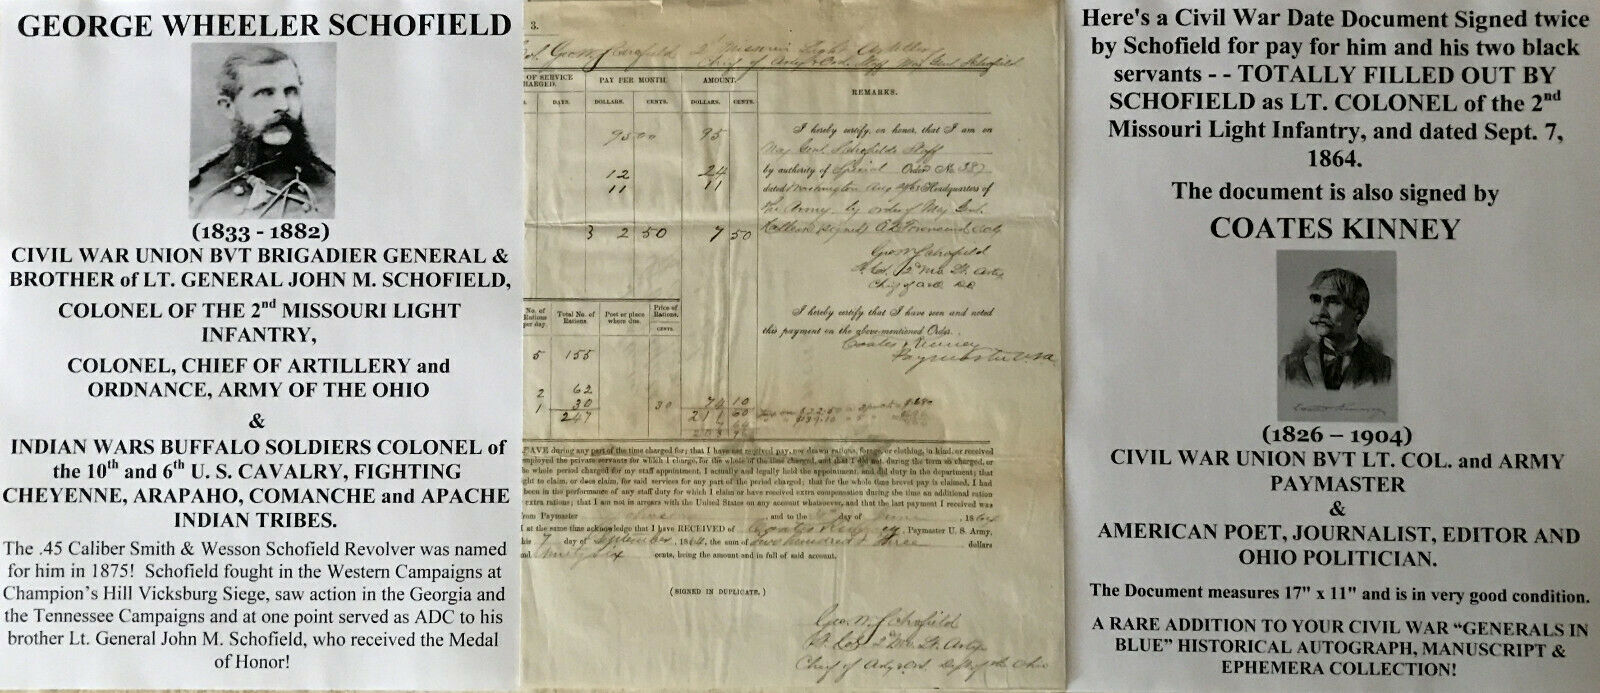 GEORGE WHEELER SCHOFIELD
(1833 - 1882)
CIVIL WAR UNION BVT BRIGADIER GENERAL &
BROTHER of LT. GENERAL JOHN M. SCHOFIELD,
COLONEL OF THE 2nd MISSOURI LIGHT
INFANTRY,
COLONEL, CHIEF OF ARTILLERY and
ORDNANCE, ARMY OF THE OHIO
&
INDIAN WARS BUFFALO SOLDIERS COLONEL of
the 10th and 6th U. S. CAVALRY, FIGHTING
CHEYENNE, ARAPAHO, COMANCHE and APACHE
INDIAN TRIBES.
The .45 Caliber Smith & Wesson Schofield Revolver was named
for him in 1875! Schofield fought in the Western Campaigns at
Champion's Hill Vicksburg Siege, saw action in the Georgia and
the Tennessee Campaigns and at one point served as ADC to his
brother Lt. General John M. Schofield, who received the Medal
of Honor!
3.
Geo W Schofield 2d Missouri Light Artillery
Chief of Arty & Ord. Staff Maj Genl Schofield
OF SERVICE PAY PER MONTH. AMOUNT. REMARKS.
DAYS. DOLLARS. CENTS. DOLLARS. CENTS.
95 00 95
12 24
11 11
3 2 50 7 50
I hereby certify, on honor, that I am on
Maj Genl Schofields Staff
by authority of Special Order No
dated Washington Aug Headquarters of
the Army by order of Maj Genl
Halleck signed E D Townsend
Geo W Schofield
Lt Col 2d Mo Lt Arty
Chief of Art
I hereby certify that I have seen and noted
this payment on the above-mentioned Order.
Coates Kinney
Paymaster USA
No. of Rations per day. Total No. of Rations. Post or place where due. Price of Rations. CENTS.
5 155
2 62
1 30 30 74 10
247 211 60
AVE during any part of the time charged for; that I have not received pay, nor drawn rations, forage, or clothing, in kind, or received
employed the private servants for which I charge, for the whole of the time charged, and that I did not, during the term so charged, or
the whole period charged for my staff appointment, I actually and legally held the appointment, and did duty in the department; that
ght to claim, or does claim, for said services for any part of the period charged; that for the whole time brevet pay is claimed, I had
been in the performance of any staff duty for which I claim or have received extra compensation during the time an additional ration
extra rations; that I am not in arrears with the United States on any account whatsoever, and that the last payment I received was
from Paymaster and to the day of 1864
I at the same time acknowledge that I have RECEIVED of Coates Kinney Paymaster U.S. Army,
his 7 day of September, 1864, the sum of Two hundred & three dollars
and Ninety Six cents, being the amount and in full of said account.
(SIGNED IN DUPLICATE.)
Geo. W Schofield
Lt Col 2d Mo Lt Arty
Chief of Arty & Ord. Dept of the Ohio
Here's a Civil War Date Document Signed twice
by Schofield for pay for him and his two black
servants - - TOTALLY FILLED OUT BY
SCHOFIELD as LT. COLONEL of the 2nd
Missouri Light Infantry, and dated Sept. 7,
1864.
The document is also signed by
COATES KINNEY
Coates Kinney
(1826 – 1904)
CIVIL WAR UNION BVT LT. COL. and ARMY
PAYMASTER
&
AMERICAN POET, JOURNALIST, EDITOR AND
OHIO POLITICIAN.
The Document measures 17" x 11" and is in very good condition.
A RARE ADDITION TO YOUR CIVIL WAR “GENERALS IN
BLUE” HISTORICAL AUTOGRAPH, MANUSCRIPT &
EPHEMERA COLLECTION!